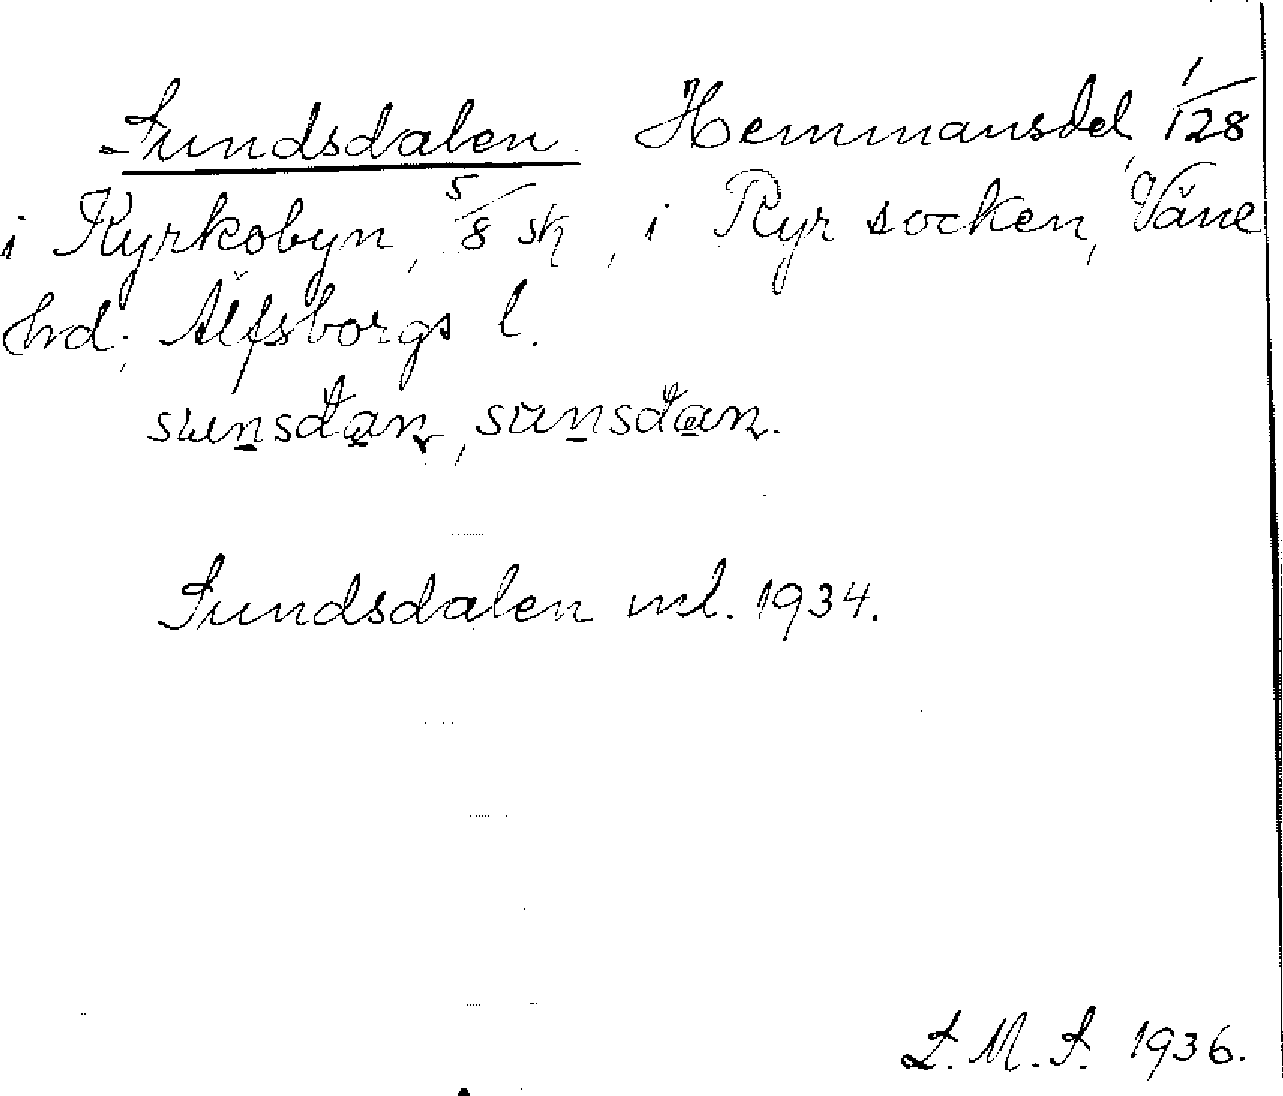 Sundsdalen. Hemmansdel, 1/128
i Kyrkobyn, 5/8 sk, i Ryr socken, Väne
hrd; Älfsborgs l.
sunsdan, sunsdan.
Sundsdalen ml. 1934.
L.M.S. 1936.